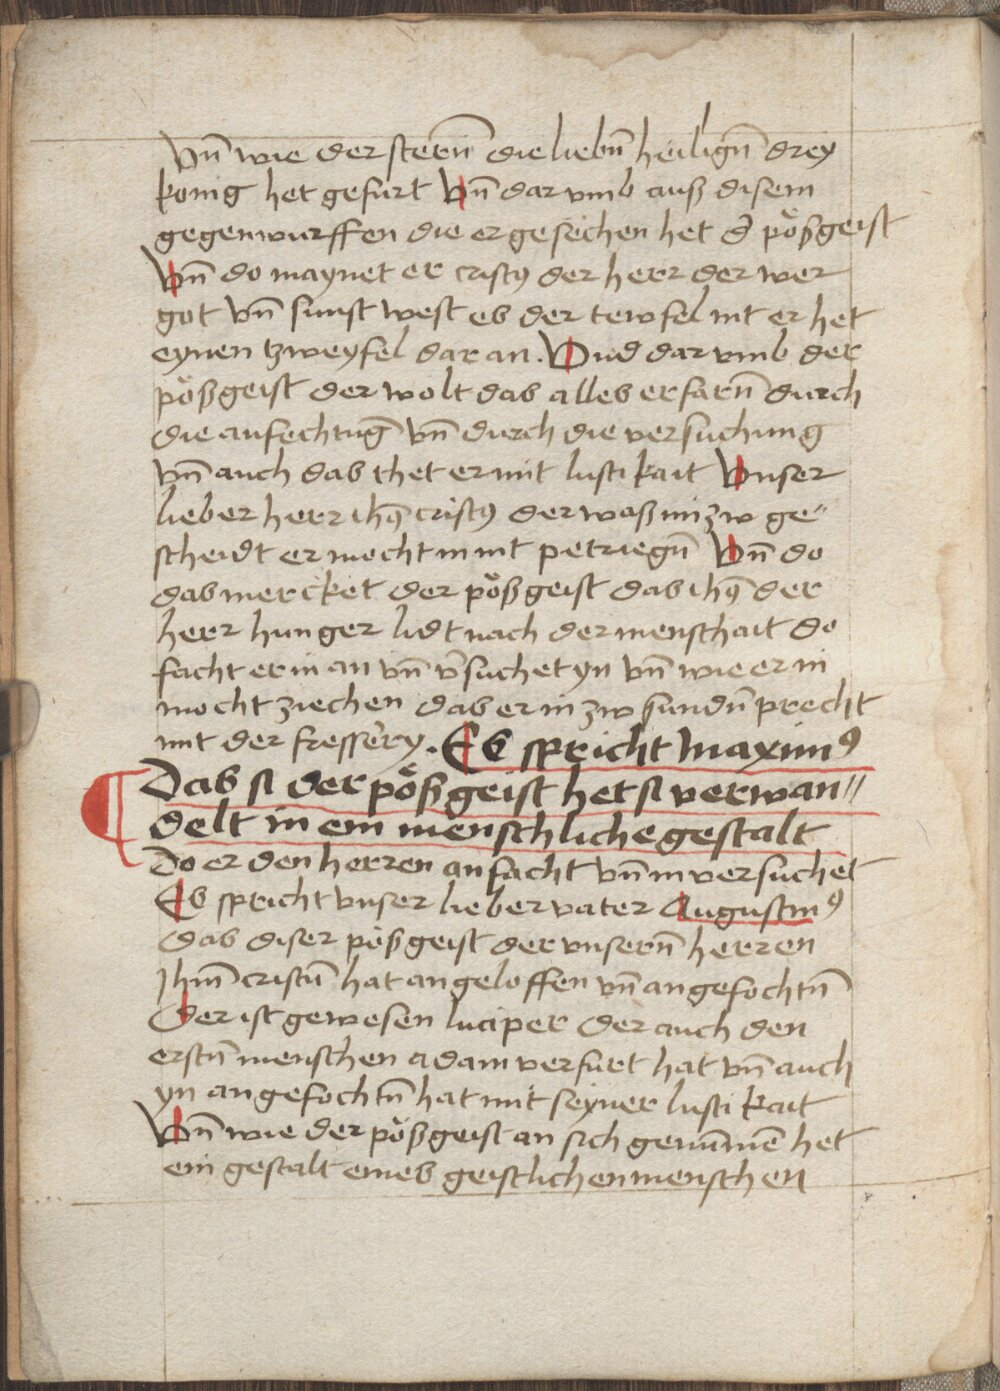 Vn̄ wie der stern̄ die liebn̄ heilign̄ drey
konig het gefurt Vn̄ dar vmb auß disem
gegenwurffen die er gesechen het d̄ pößgeist
Vn̄ do maynet er cristꝯ der herr der wer
got vn̄ sunst west es der tewfel nit er het
eynen tzweyfel dar an. Vnd dar vmb der
pößgeist der wolt das alles erfarn̄ durch
die anfechtūg vn̄ durch die versuchung
vn̄ auch das thet er mit listikait Vnser
lieber herr ihꝯ cristꝯ der waß im zw ge〃
scheidt er mocht in nit petriegn̄ Vn̄ do
das mercket der pößgeist das ihꝯ der
herr hunger lidt nach der menschait do
facht er in an vn̄ v̄suchet yn vn̄ wie er in
mocht ziechen das er in zw sundn̄ precht
mit der fressery. Es spricht maximꝯ
Das si der pößgeist het si verwan〃
delt in ein menschliche gestalt
Do er den herren an facht vn̄ in versuchet
Es spricht vnser lieber vater Augustinꝯ
das diser pößgeist der vnsern̄ herren
Jhm̄ cristū hat angeloffen vn̄ angefochtn̄
Der ist gewesen luciper der auch den
erstn̄ menschen adam verfurt hat vn̄ auch
yn angefochtn̄ hat mit seyner listikait
Vn̄ wie der pößgeist an sich genūmē het
ein gestalt eines geistlichen menschen